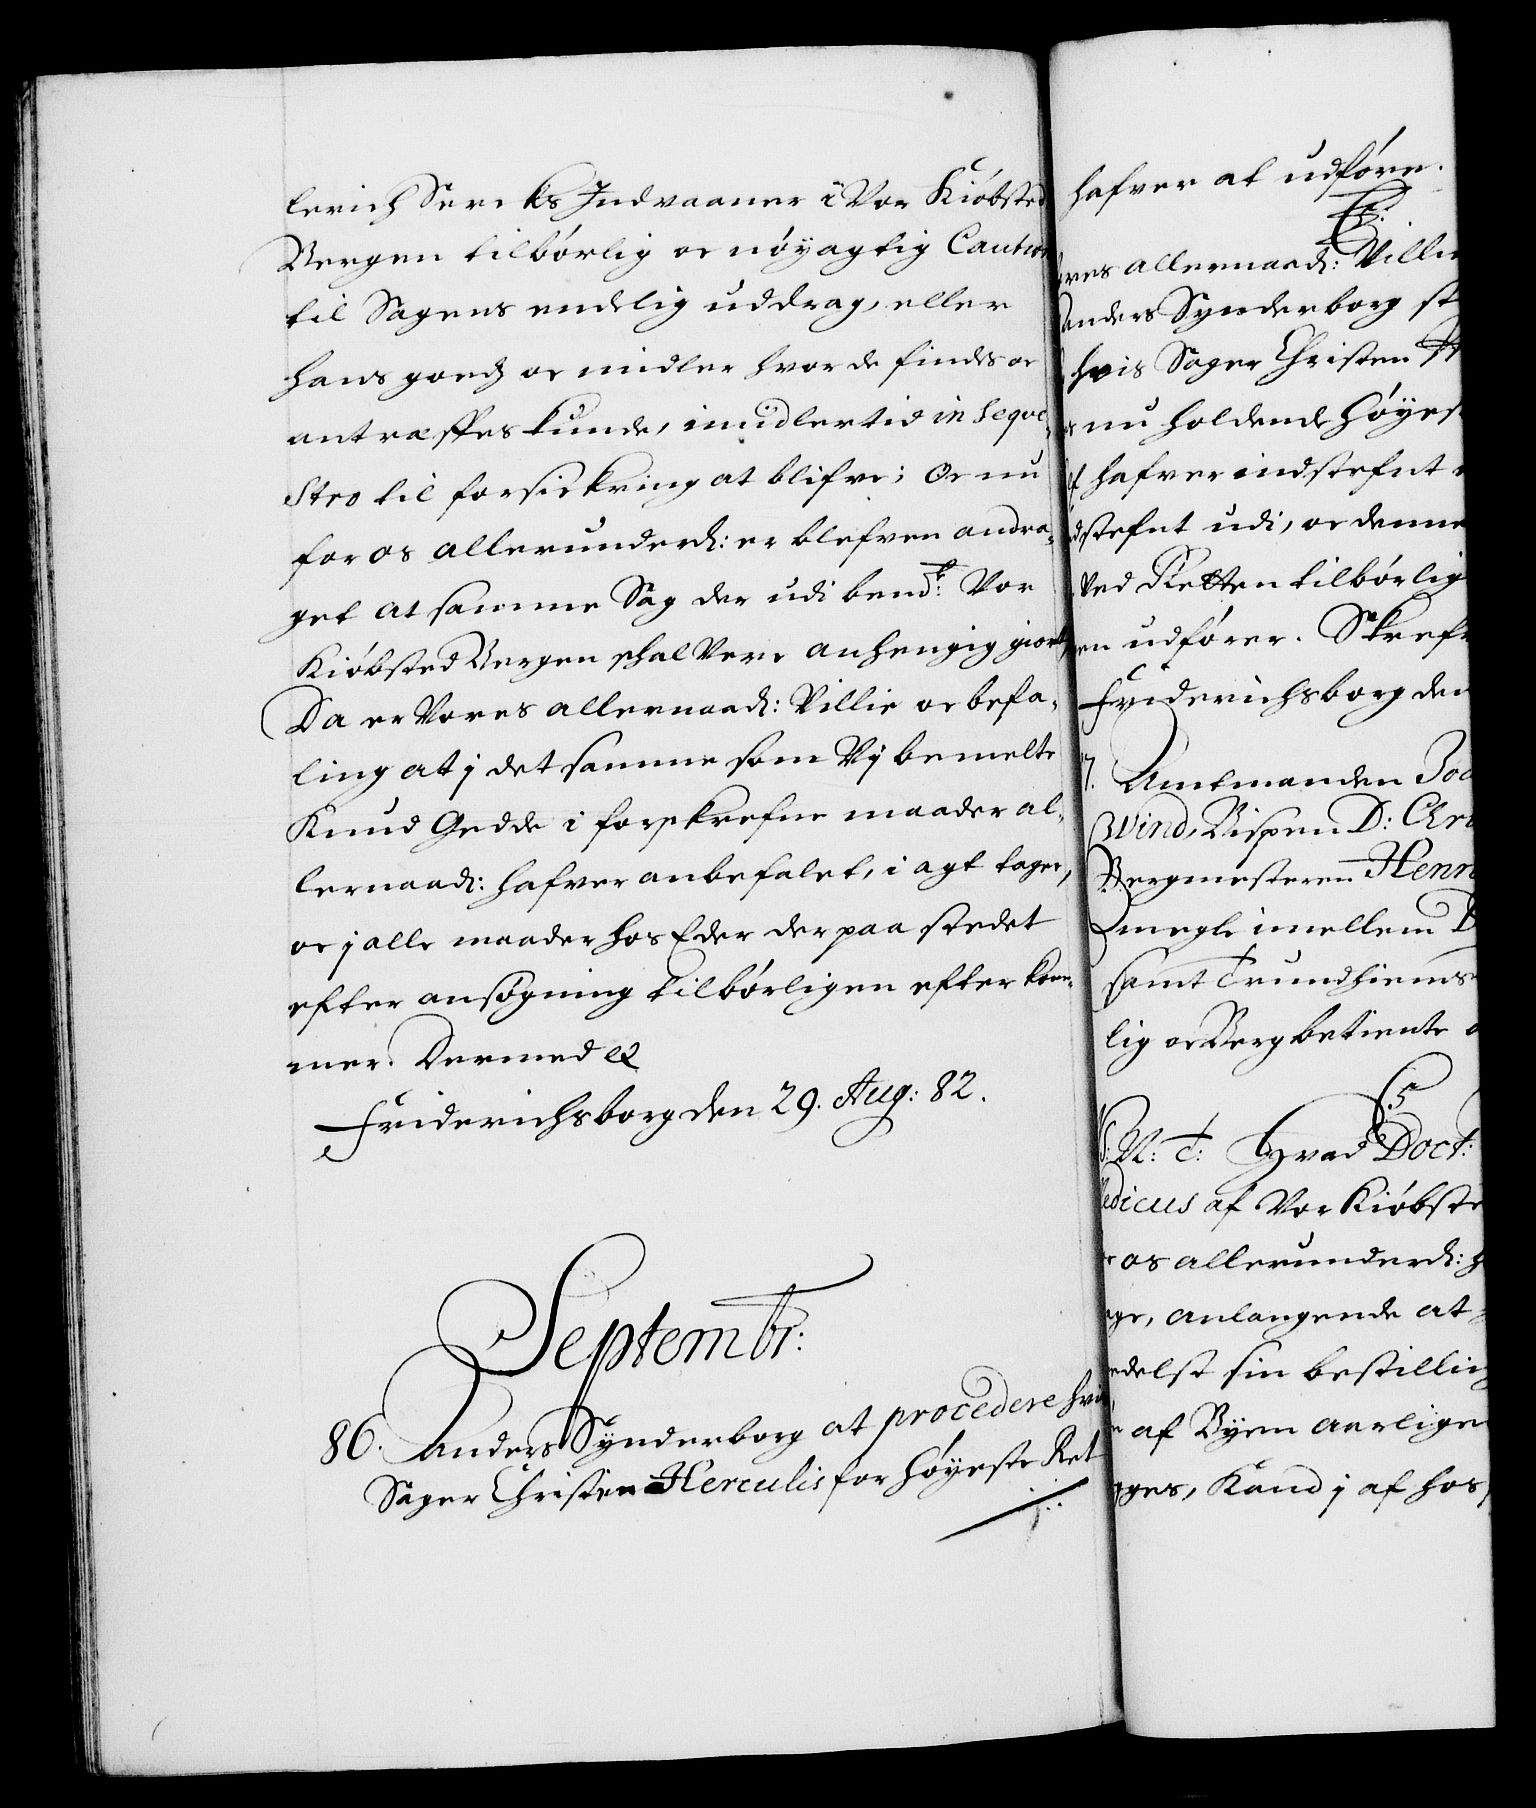 lerich Sercks Indvaaner i Vor Kiøbsted
Bergen tilbørlig oc nøyagtig Caution
til Sagens endelig uddrag, eller
hans goeds oc midler hvor de findes oc
antræffes kunde, imidlertid in Seqve-
stro til forsickring at blifve; Oc nu
for os allerunderd: er blefven andra-
get at samme Sag der udi bemte: Vor
Kiøbsted Bergen schal Vere anhengig giort,
Da er Vores allernaad: Villie oc befa-
ling at j det samme som Vj bemelte
Knud Gedde i forskrefne maader al-
lernaad: hafver anbefalet, i agt tager,
oc j alle maader hos Eder der paa stedet
efter ansøgning tilbørligen efterkom-
mer. Dermed &
Friderichsborg den 29. Aug: 82.
Septembr:
86. Anders Synderborg at procedere hvis
Sager Christen Herculis for Høyeste Ret
hafver at udføre.
Vores allernaad: Villie
Anders Synderborg
hvis Sager Christen
nu holdende Høyes
hafver indstefnt
stefnt udi, oc denne
Ved Retten tilbørlig
udfører. Skrefv
Friderichsborg den
7. Amtmanden
Svind, Bispen D: Chri
Bergmesteren Henn
megle imellem
samt Trundhiems
lig oc Bergbetiente
S: N: T: Hvad Doct:
Medicus af Vor Kiøbste
os allerunderd:
anlangende at
edelst sin bestilling
af Byen aarligen
gges, Kand j af hos